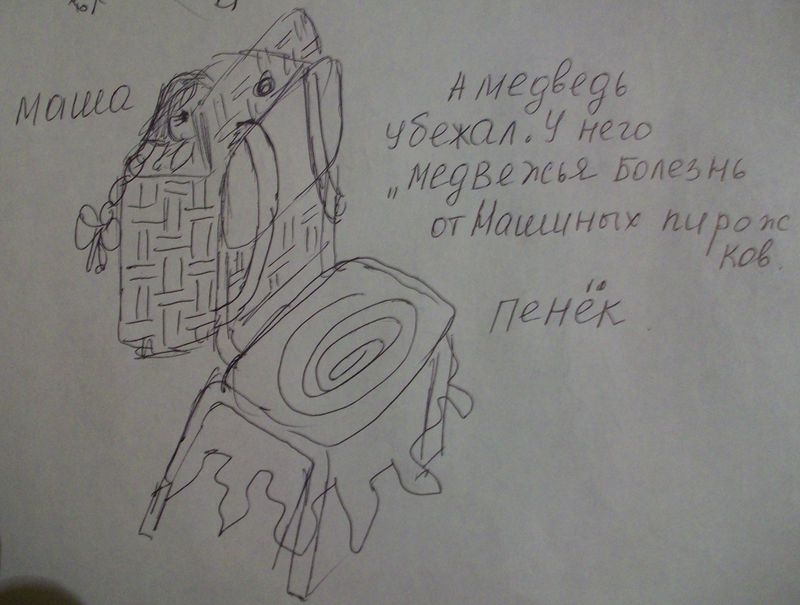 маша
А медведь
убежал. У него
„медвежья болезнь
от Машиных пирож
ков.
пенёк